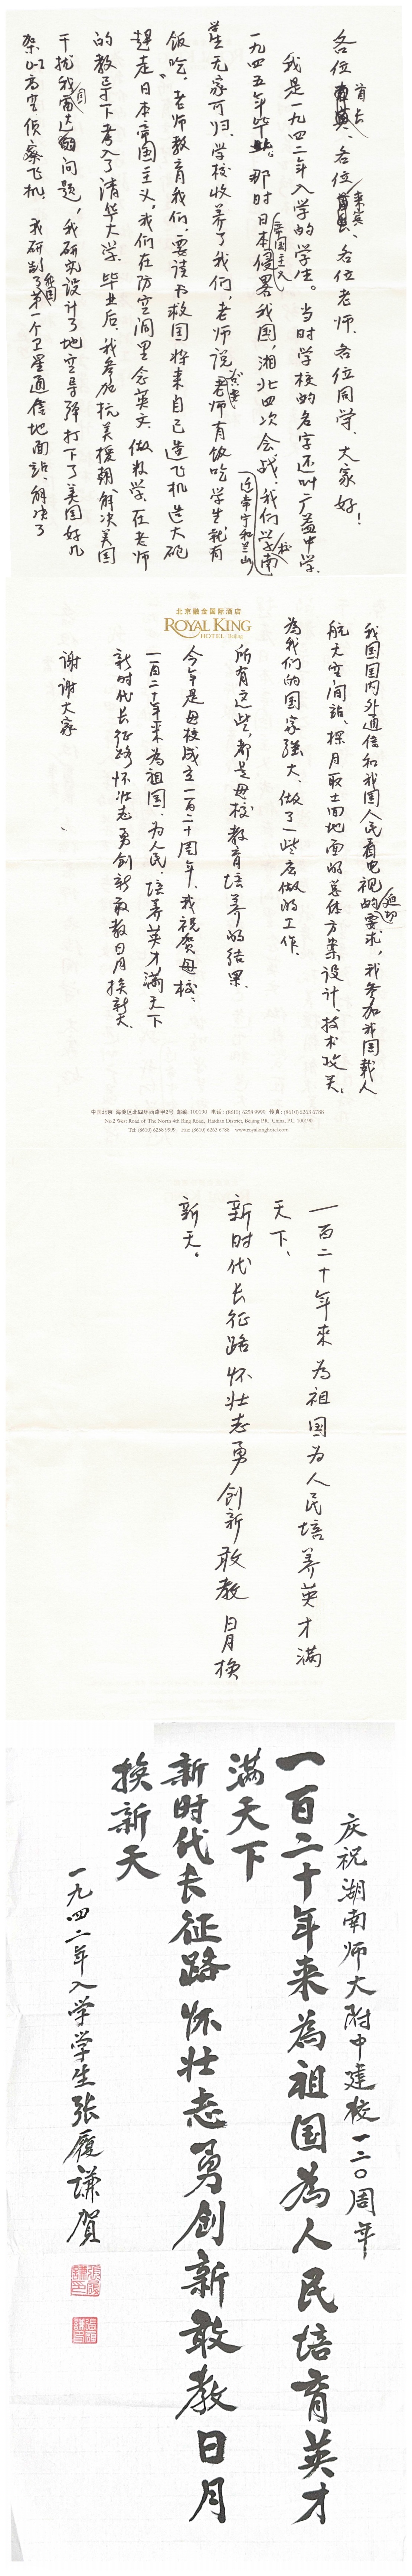 各位首长、各位来宾、各位老师、各位同学、大家好！
我是一九四二年入学的学生。当时学校的名字还叫广益中学。
一九四五年毕业。那时日本帝国主义侵略我国，湘北四次会战，我们学校南迁常宁和蓝山
学生无家可归、学校收养了我们，老师说老师有饭吃学生就有
饭吃。老师教育我们，要读书救国将来自己造飞机造大砲
赶走日本帝国主义，我们在防空洞里念英文、做数学、在老师
的教导下考入了清华大学、毕业后、我参加抗美援朝、解决美国
干扰我国雷达的问题，我研究设计了地空导弹打下了美国好几
架U2高空侦察飞机。我研制了我国第一个卫星通信地面站、解决了
北京融金国际酒店
ROYAL KING
HOTEL · Beijing
我国国内外通信和我国人民看电视的迫切要求，我参加我国载人
航天空间站、探月取土回地面的总体方案设计、技术攻关。
为我们的国家强大、做了一些应做的工作、
所有这些，都是母校教育培养的结果.
今年是母校成立一百二十周年、我祝贺母校：
一百二十年来为祖国、为人民、培养英才满天下
新时代长征路怀壮志勇创新敢教日月换新天、
谢谢大家
中国北京 海淀区北四环西路甲2号 邮编:100190 电话: (8610) 6258 9999 传真: (8610) 6263 6788
No.2 West Road of The North 4th Ring Road, Haidian District, Beijing P.R. China, P.C. 100190
Tel: (8610) 6258 9999 Fax: (8610) 6263 6788 www.royalkinghotel.com
一百二十年来为祖国为人民培养英才满
天下、
新时代长征路怀壮志勇创新敢教日月换
新天。
庆祝湖南师大附中建校一二〇周年
一百二十年来为祖国为人民培育英才
满天下
新时代长征路怀壮志勇创新敢教日月
换新天
一九四二年入学学生张履谦贺